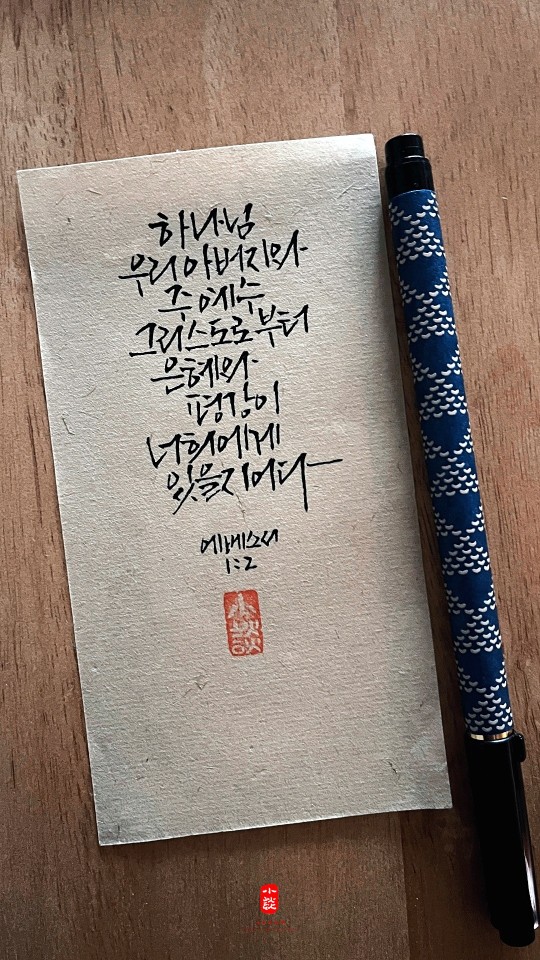 하나님
우리 아버지와
주 예수
그리스도로부터
은혜와
평강이
너희에게
있을지어다
에베소서
1:2
小談
小談